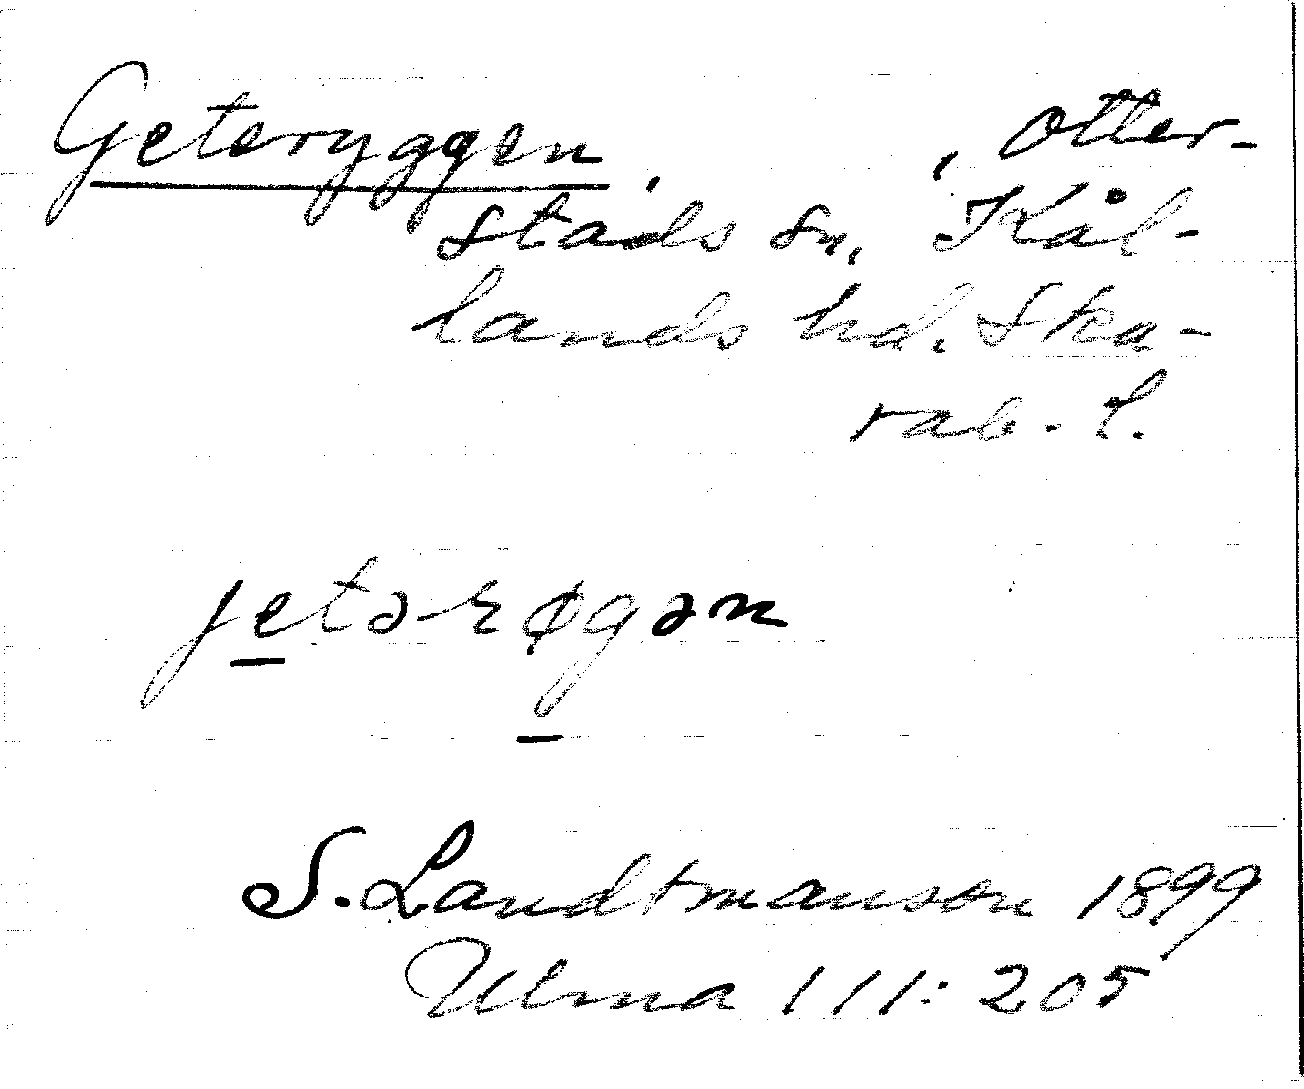 Geteryggen, , Otter-
stads sn, Kål-
lands hd. Ska-
rab. l.
jetərøgən
S. Landtmanson 1899
Ulma 111:205